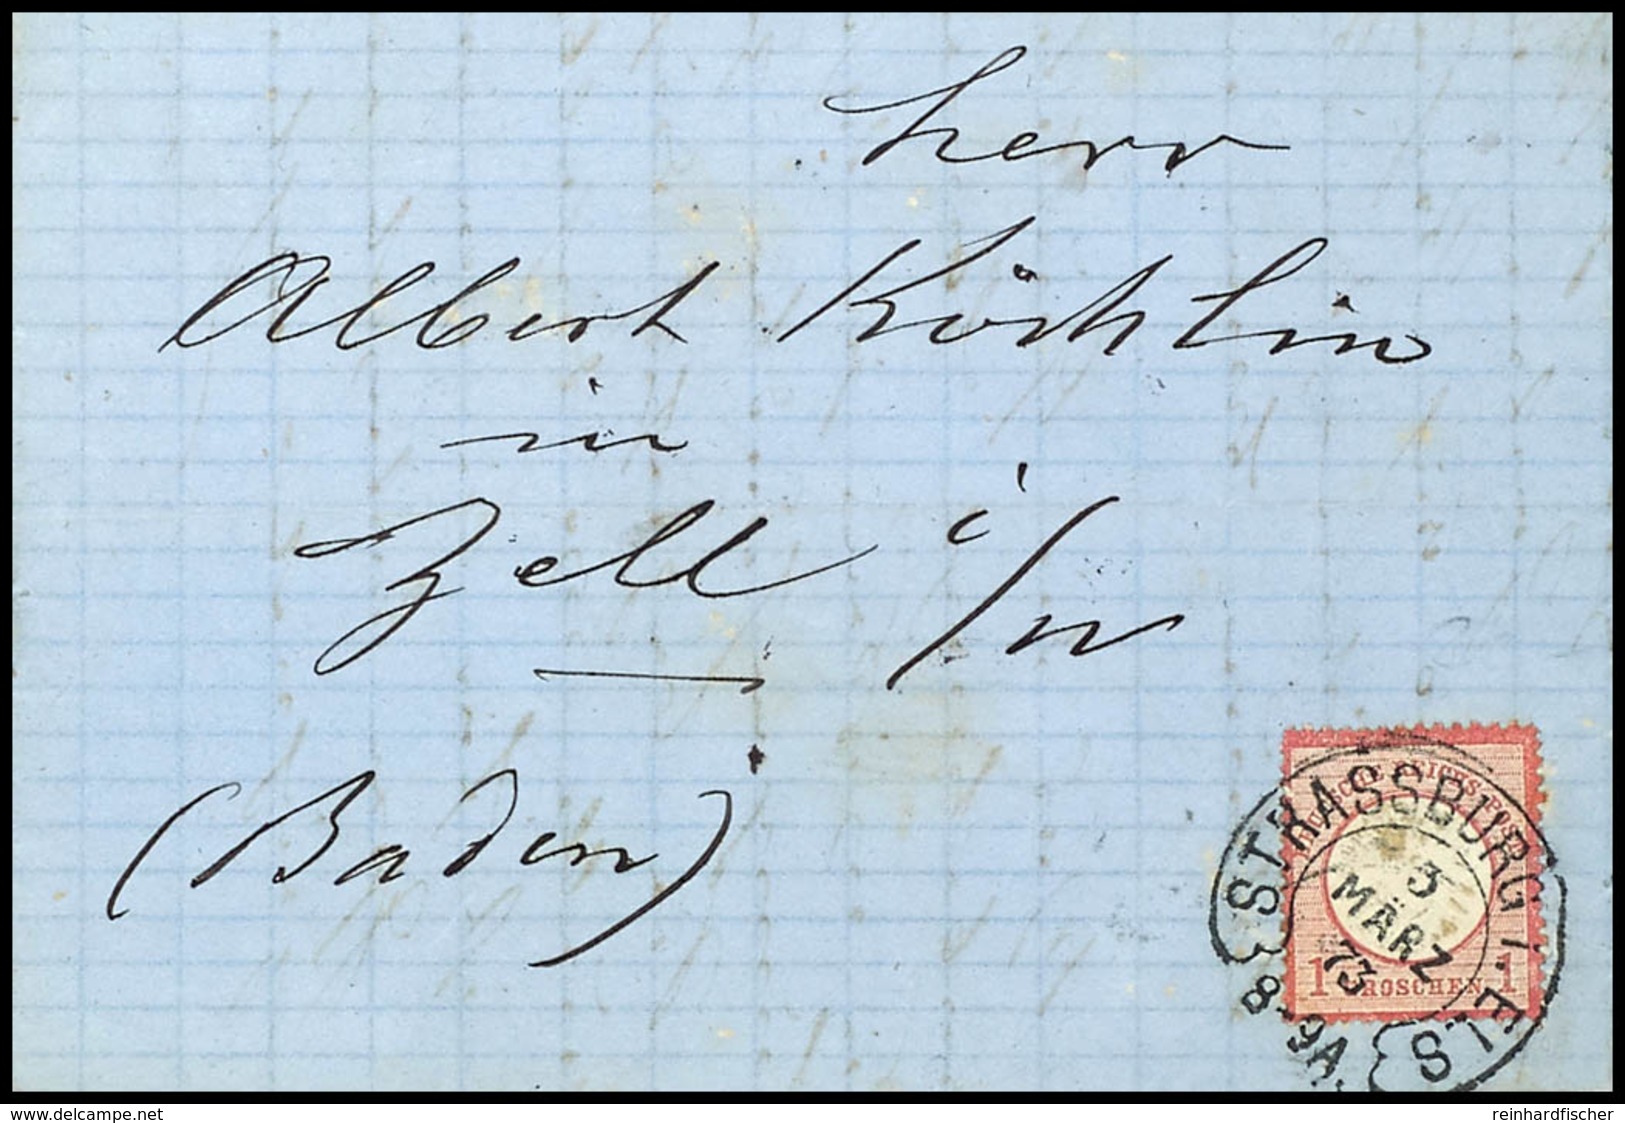 Herr
Albert Köchlin
in
Zell i/W
(Baden)
DEUTSCHE REICHS-POST
1 GROSCHEN 1
STRASSBURG I. ELS
3
MÄRZ
73
8-9A.
www.delcampe.net
reinhardfischer